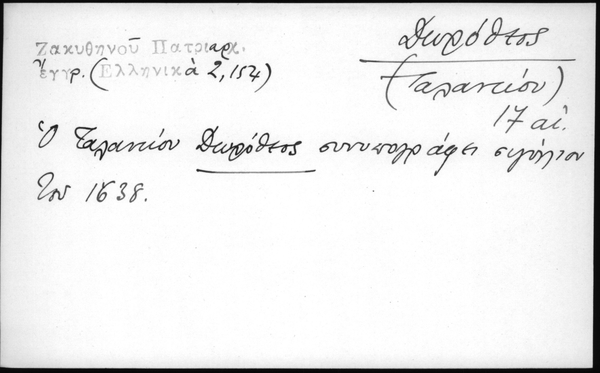 Ζακυθηνοῦ Πατριαρχ.
ἔγγρ. (Ἑλληνικὰ 2, 154)
Δωρόθεος
(Ταλαντίου)
17 αἰ.
Ὁ Ταλαντίου Δωρόθεος συνυπογράφει σιγίλλιον
τοῦ 1638.